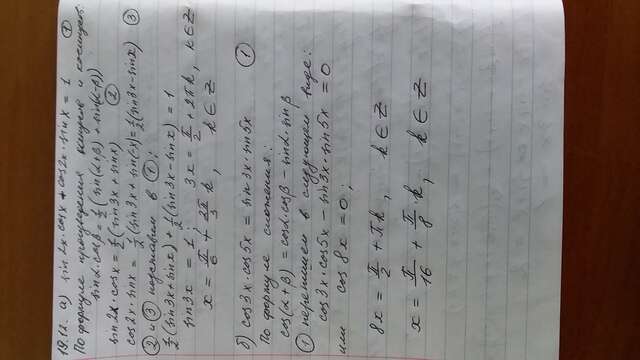 18.12. а) sin 2x · cos x + cos 2x · sin x = 1 ①
По формуле произведения синуса и косинуса
sinα · cosβ = 1/2 (sin(α+β) + sin(α-β))
sin 2x · cos x = 1/2 (sin 3x + sin x) ②
cos 2x · sin x = 1/2 (sin 3x + sin(-x)) = 1/2 (sin 3x - sin x) ③
② и ③ подставим в ①:
1/2 (sin 3x + sin x) + 1/2 (sin 3x - sin x) = 1
sin 3x = 1; 3x = π/2 + 2πk, k ∈ Z
x = π/6 + 2π/3 k, k ∈ Z
б) cos 3x · cos 5x = sin 3x · sin 5x ①
По формуле сложения:
cos(α+β) = cosα · cosβ - sinα · sinβ
① перепишем в следующем виде:
cos 3x · cos 5x - sin 3x · sin 5x = 0
или cos 8x = 0;
8x = π/2 + πk, k ∈ Z
x = π/16 + π/8 k, k ∈ Z